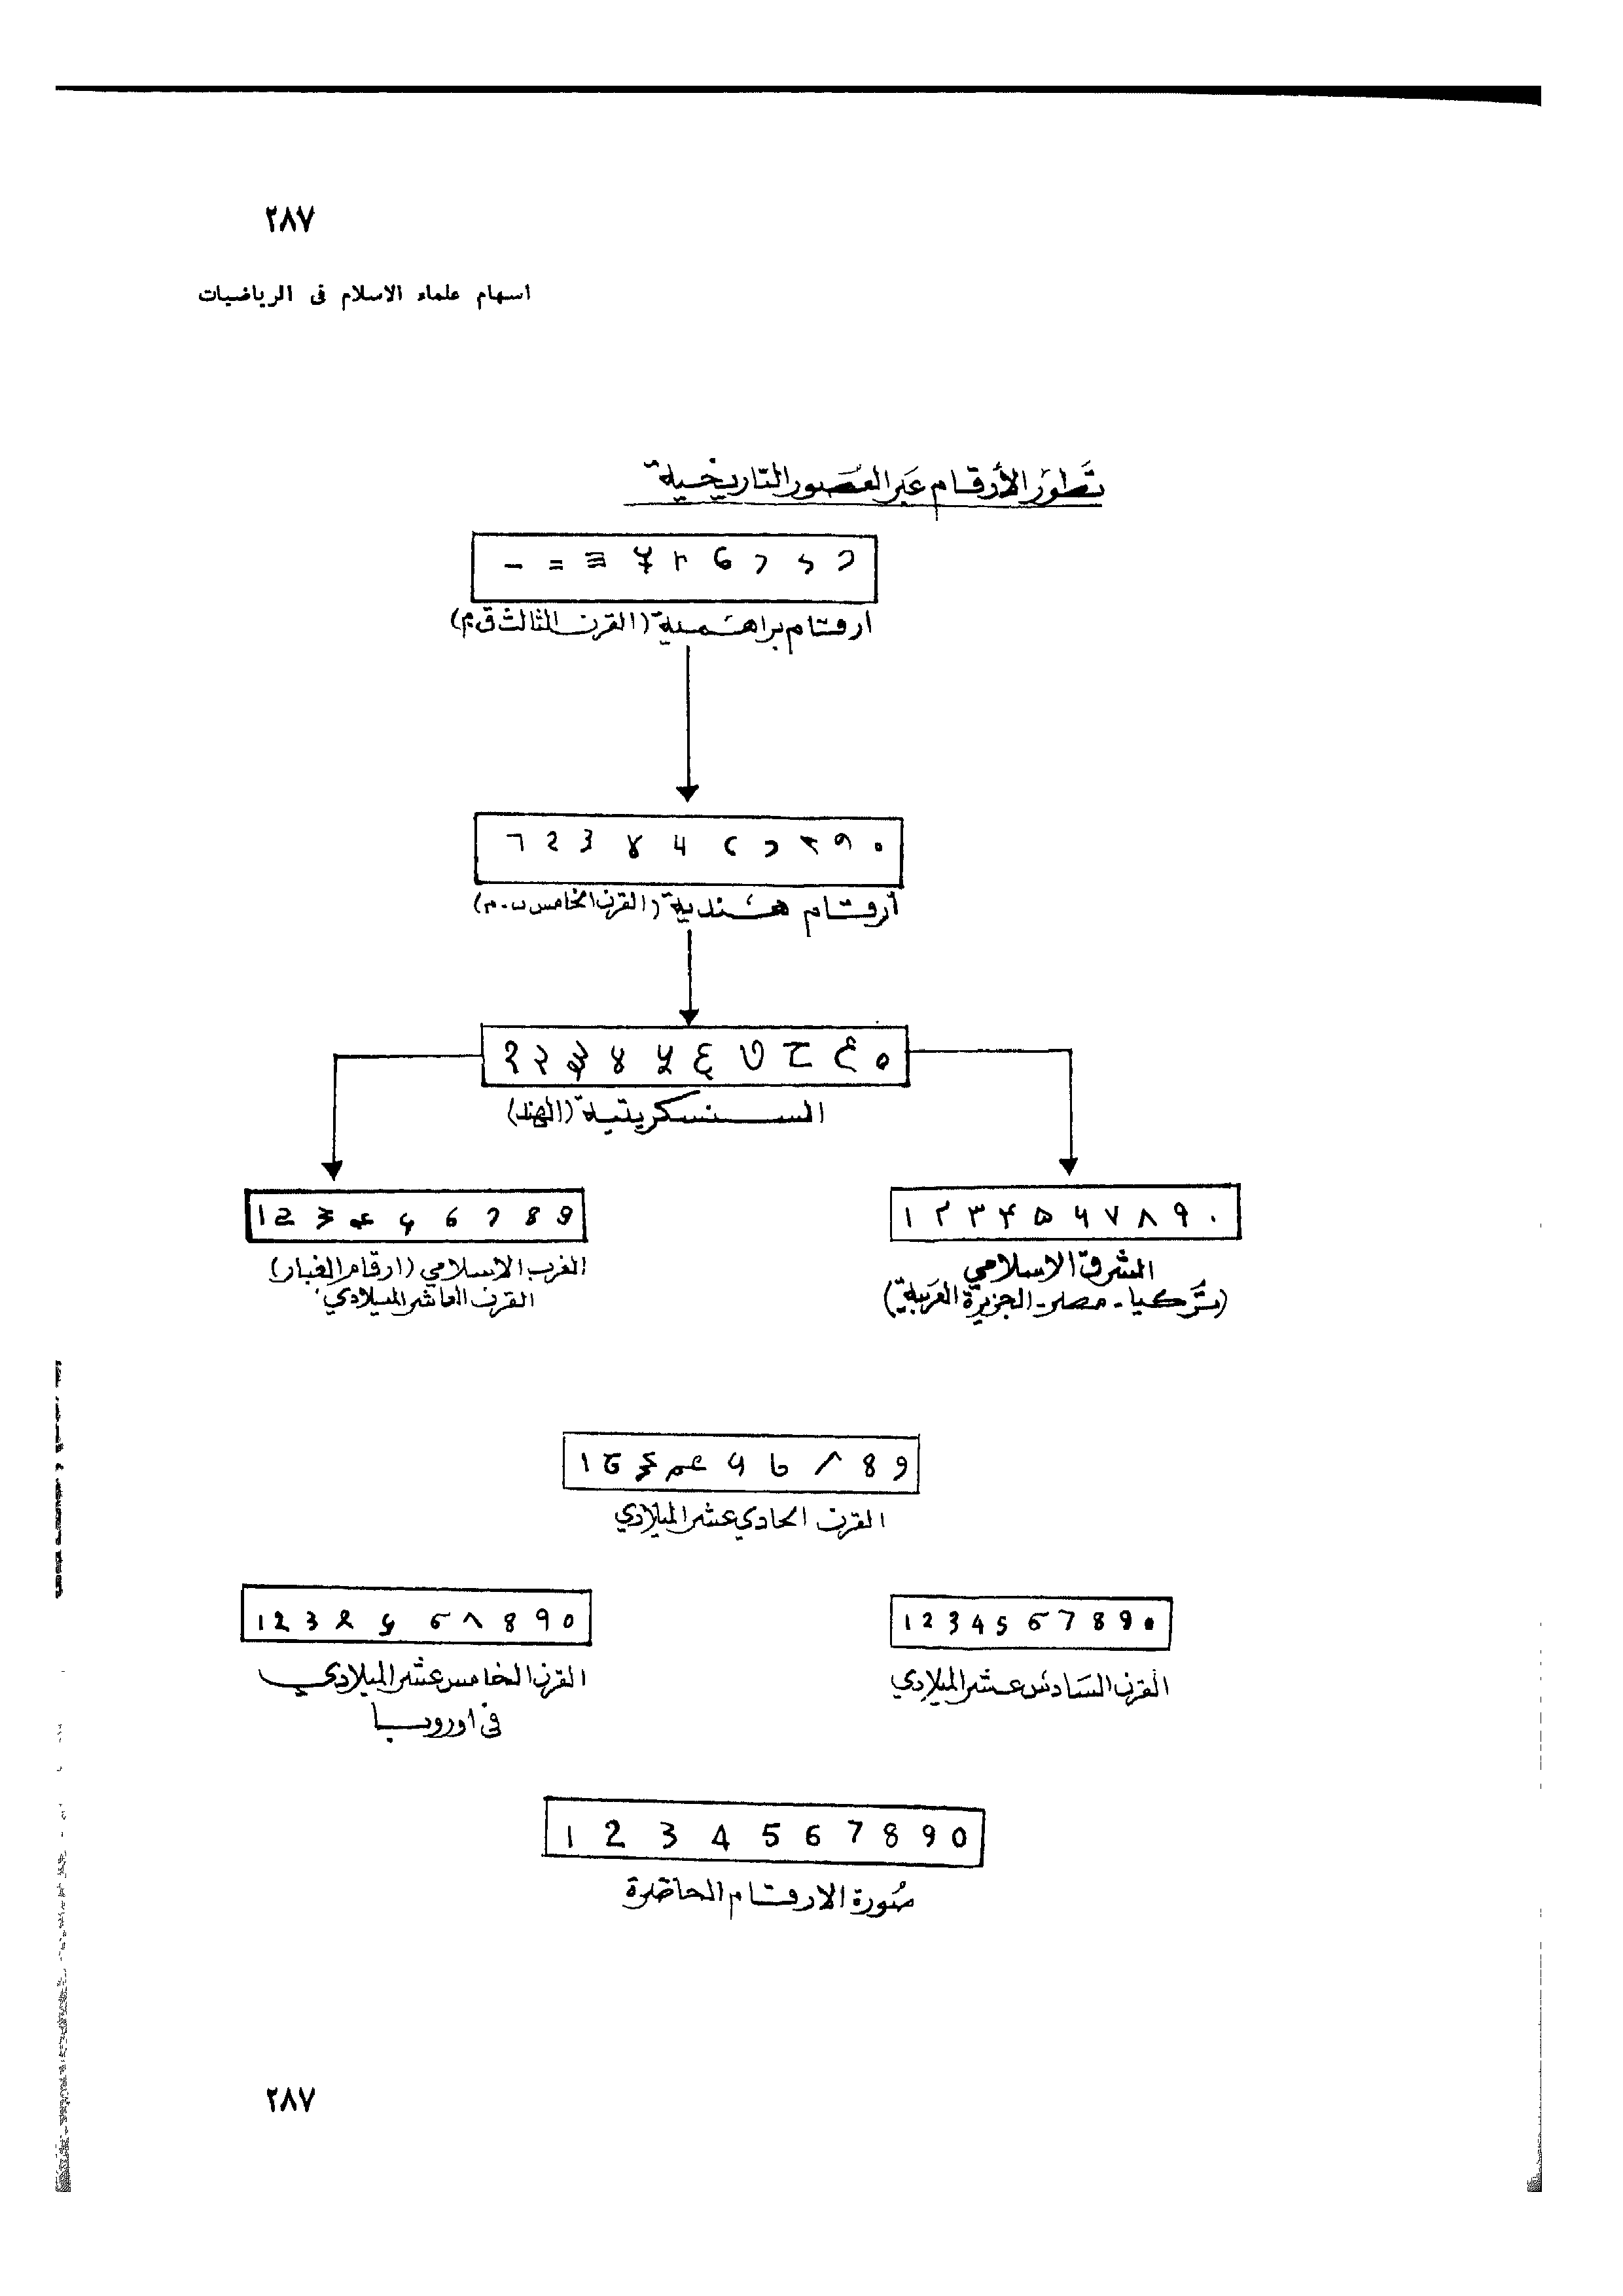 ٢٨٧
اسهام علماء الاسلام فى الرياضيات
تطور الأرقام عبر العصور التاريخية
أرقام براهمية (القرن الثالث ق.م)
أرقام هندية (القرن الخامس ب.م)
السنسكريتية (الهند)
१ २ ३ ४
1 2 6 7 8 9
١ ٢ ٣ ۴ ۵ ٧ ٨ ٩ ٠
الغرب الاسلامي (ارقام الغبار)
القرن العاشر الميلادي
الشرق الاسلامي
(تركيا - مصر - الجزيرة العربية)
القرن الحادي عشر الميلادي
القرن الخامس عشر الميلادي
في اوروبا
1 2 3 4 5 6 7 8 9 0
القرن السادس عشر الميلادي
1 2 3 4 5 6 7 8 9 0
صورة الارقام الحاضرة
٢٨٧